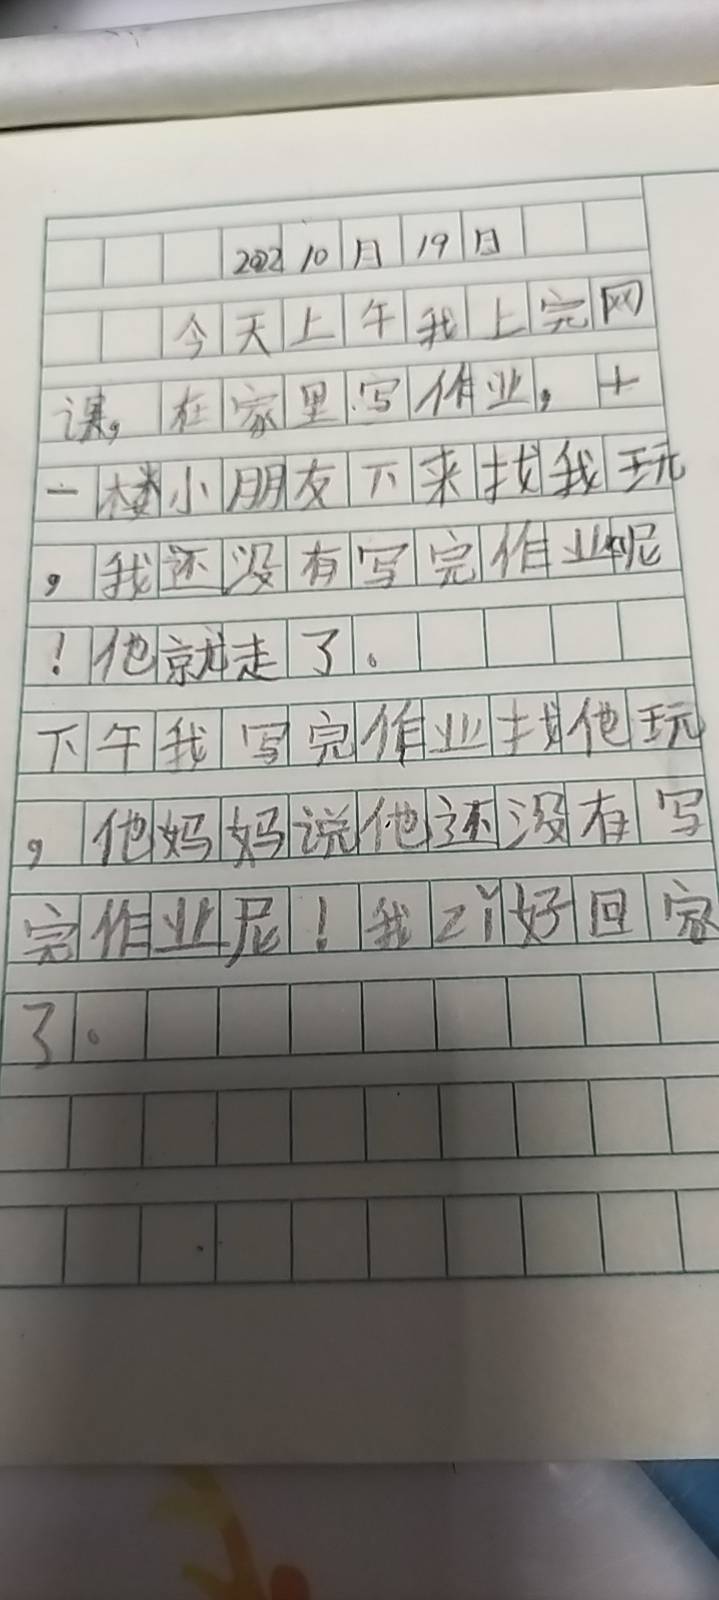 2022 10月19日
今天上午我上完网
课，在家里写作业，十
一楼小朋友下来找我玩
，我还没有写完作业呢
！他就走了。
下午我写完作业找他玩
，他妈妈说他还没有写
完作业尼！我zǐ好回家
了。